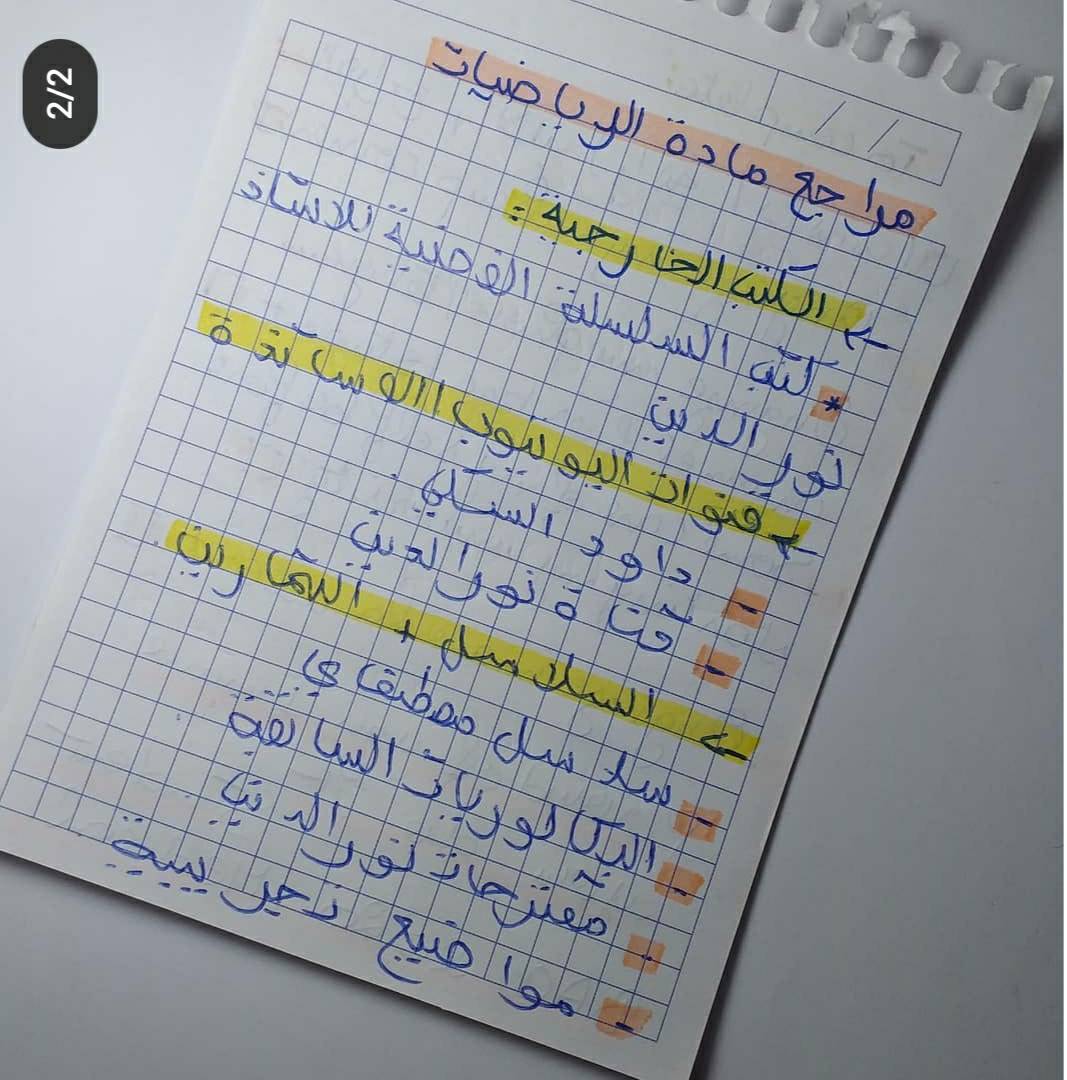 2/2
مراجع مادة الرياضيات
← الكتب الخارجية :
* كتب السلسلة الفضية للاستاذ
نور الدين
← قنوات اليوتيوب / الاساتذة
- داود السكي
- قناة نور الدين
← السلاسل + التمارين
- سلاسل مصطفاي
- البكالوريات السابقة
- مقترحات نور الدين
- مواضيع تجريبية